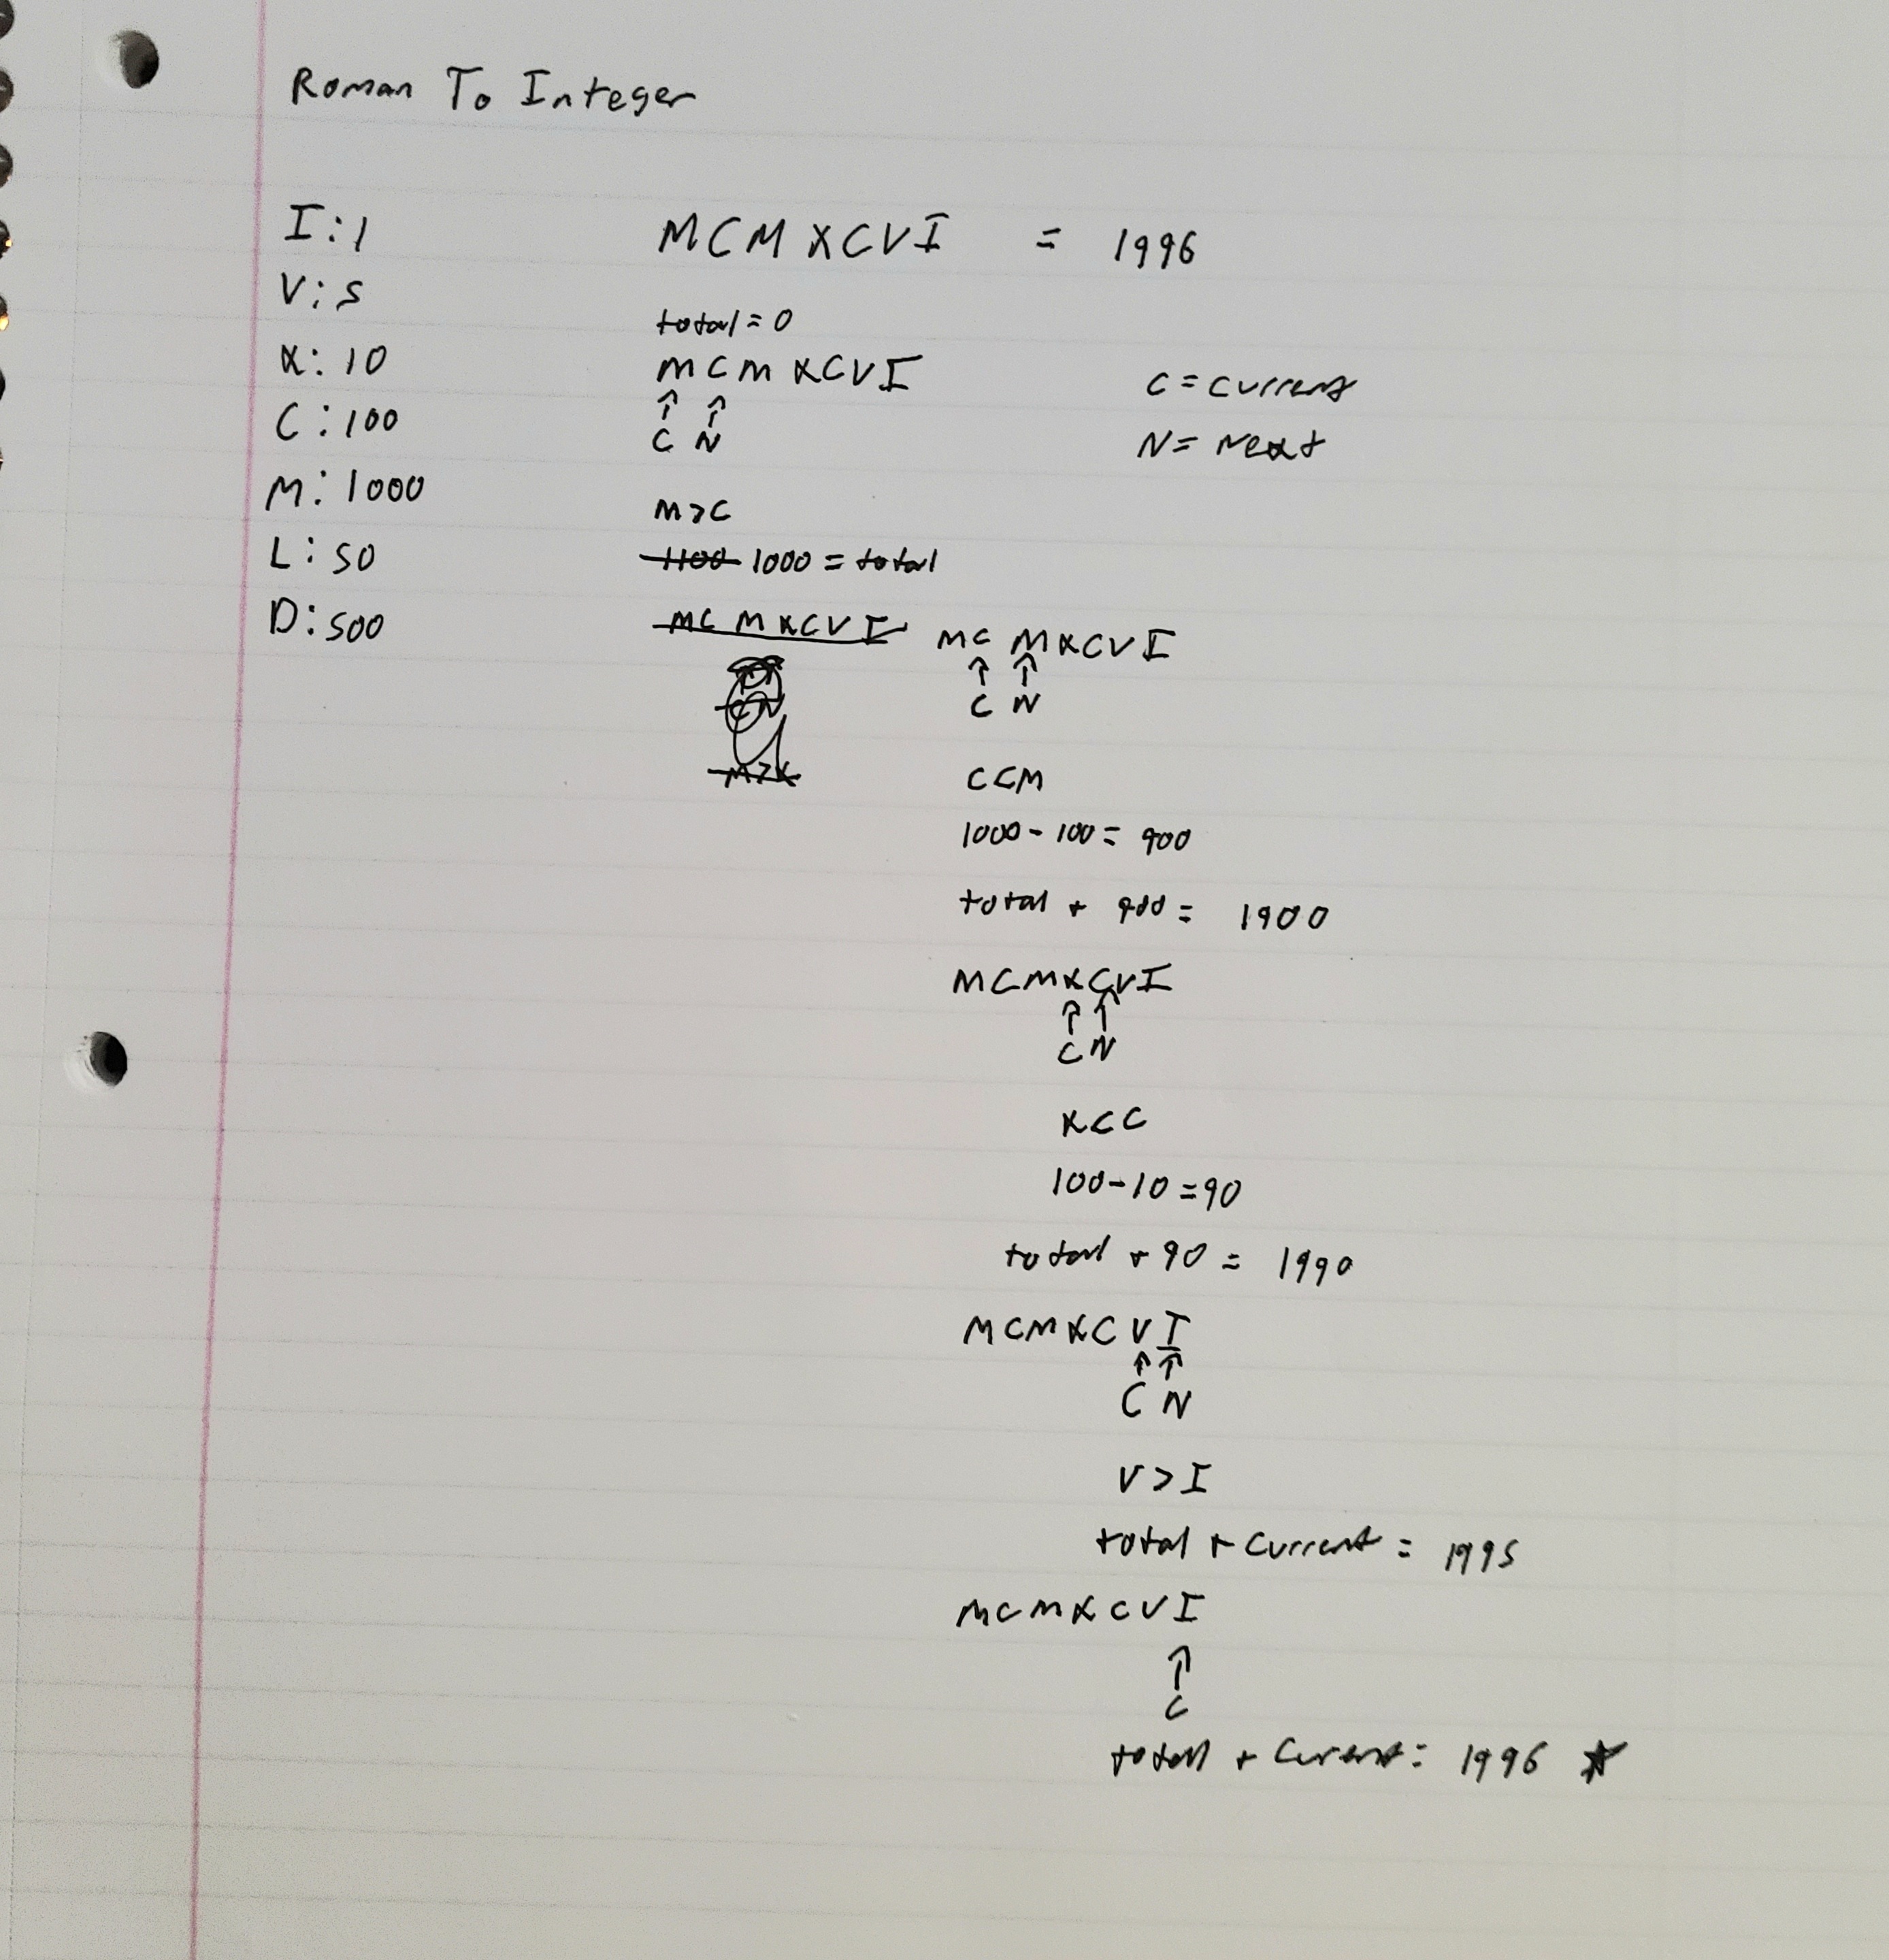 Roman To Integer
I:1
V:5
X:10
C:100
M:1000
L:50
D:500
MCMXCVI = 1996
total=0
MCMXCVI
↑ ↑
C N
C=Current
N=Next
M>C
1100 1000=total
MCMXCVI MCMXCVI
↑ ↑
C N
M>X
C<M
1000-100=900
total + 900= 1900
MCMXCVI
↑ ↑
C N
X<C
100-10=90
total +90= 1990
MCMXCVI
↑ ↑
C N
V>I
total + Current= 1995
MCMXCVI
↑
C
total + Current= 1996 ★